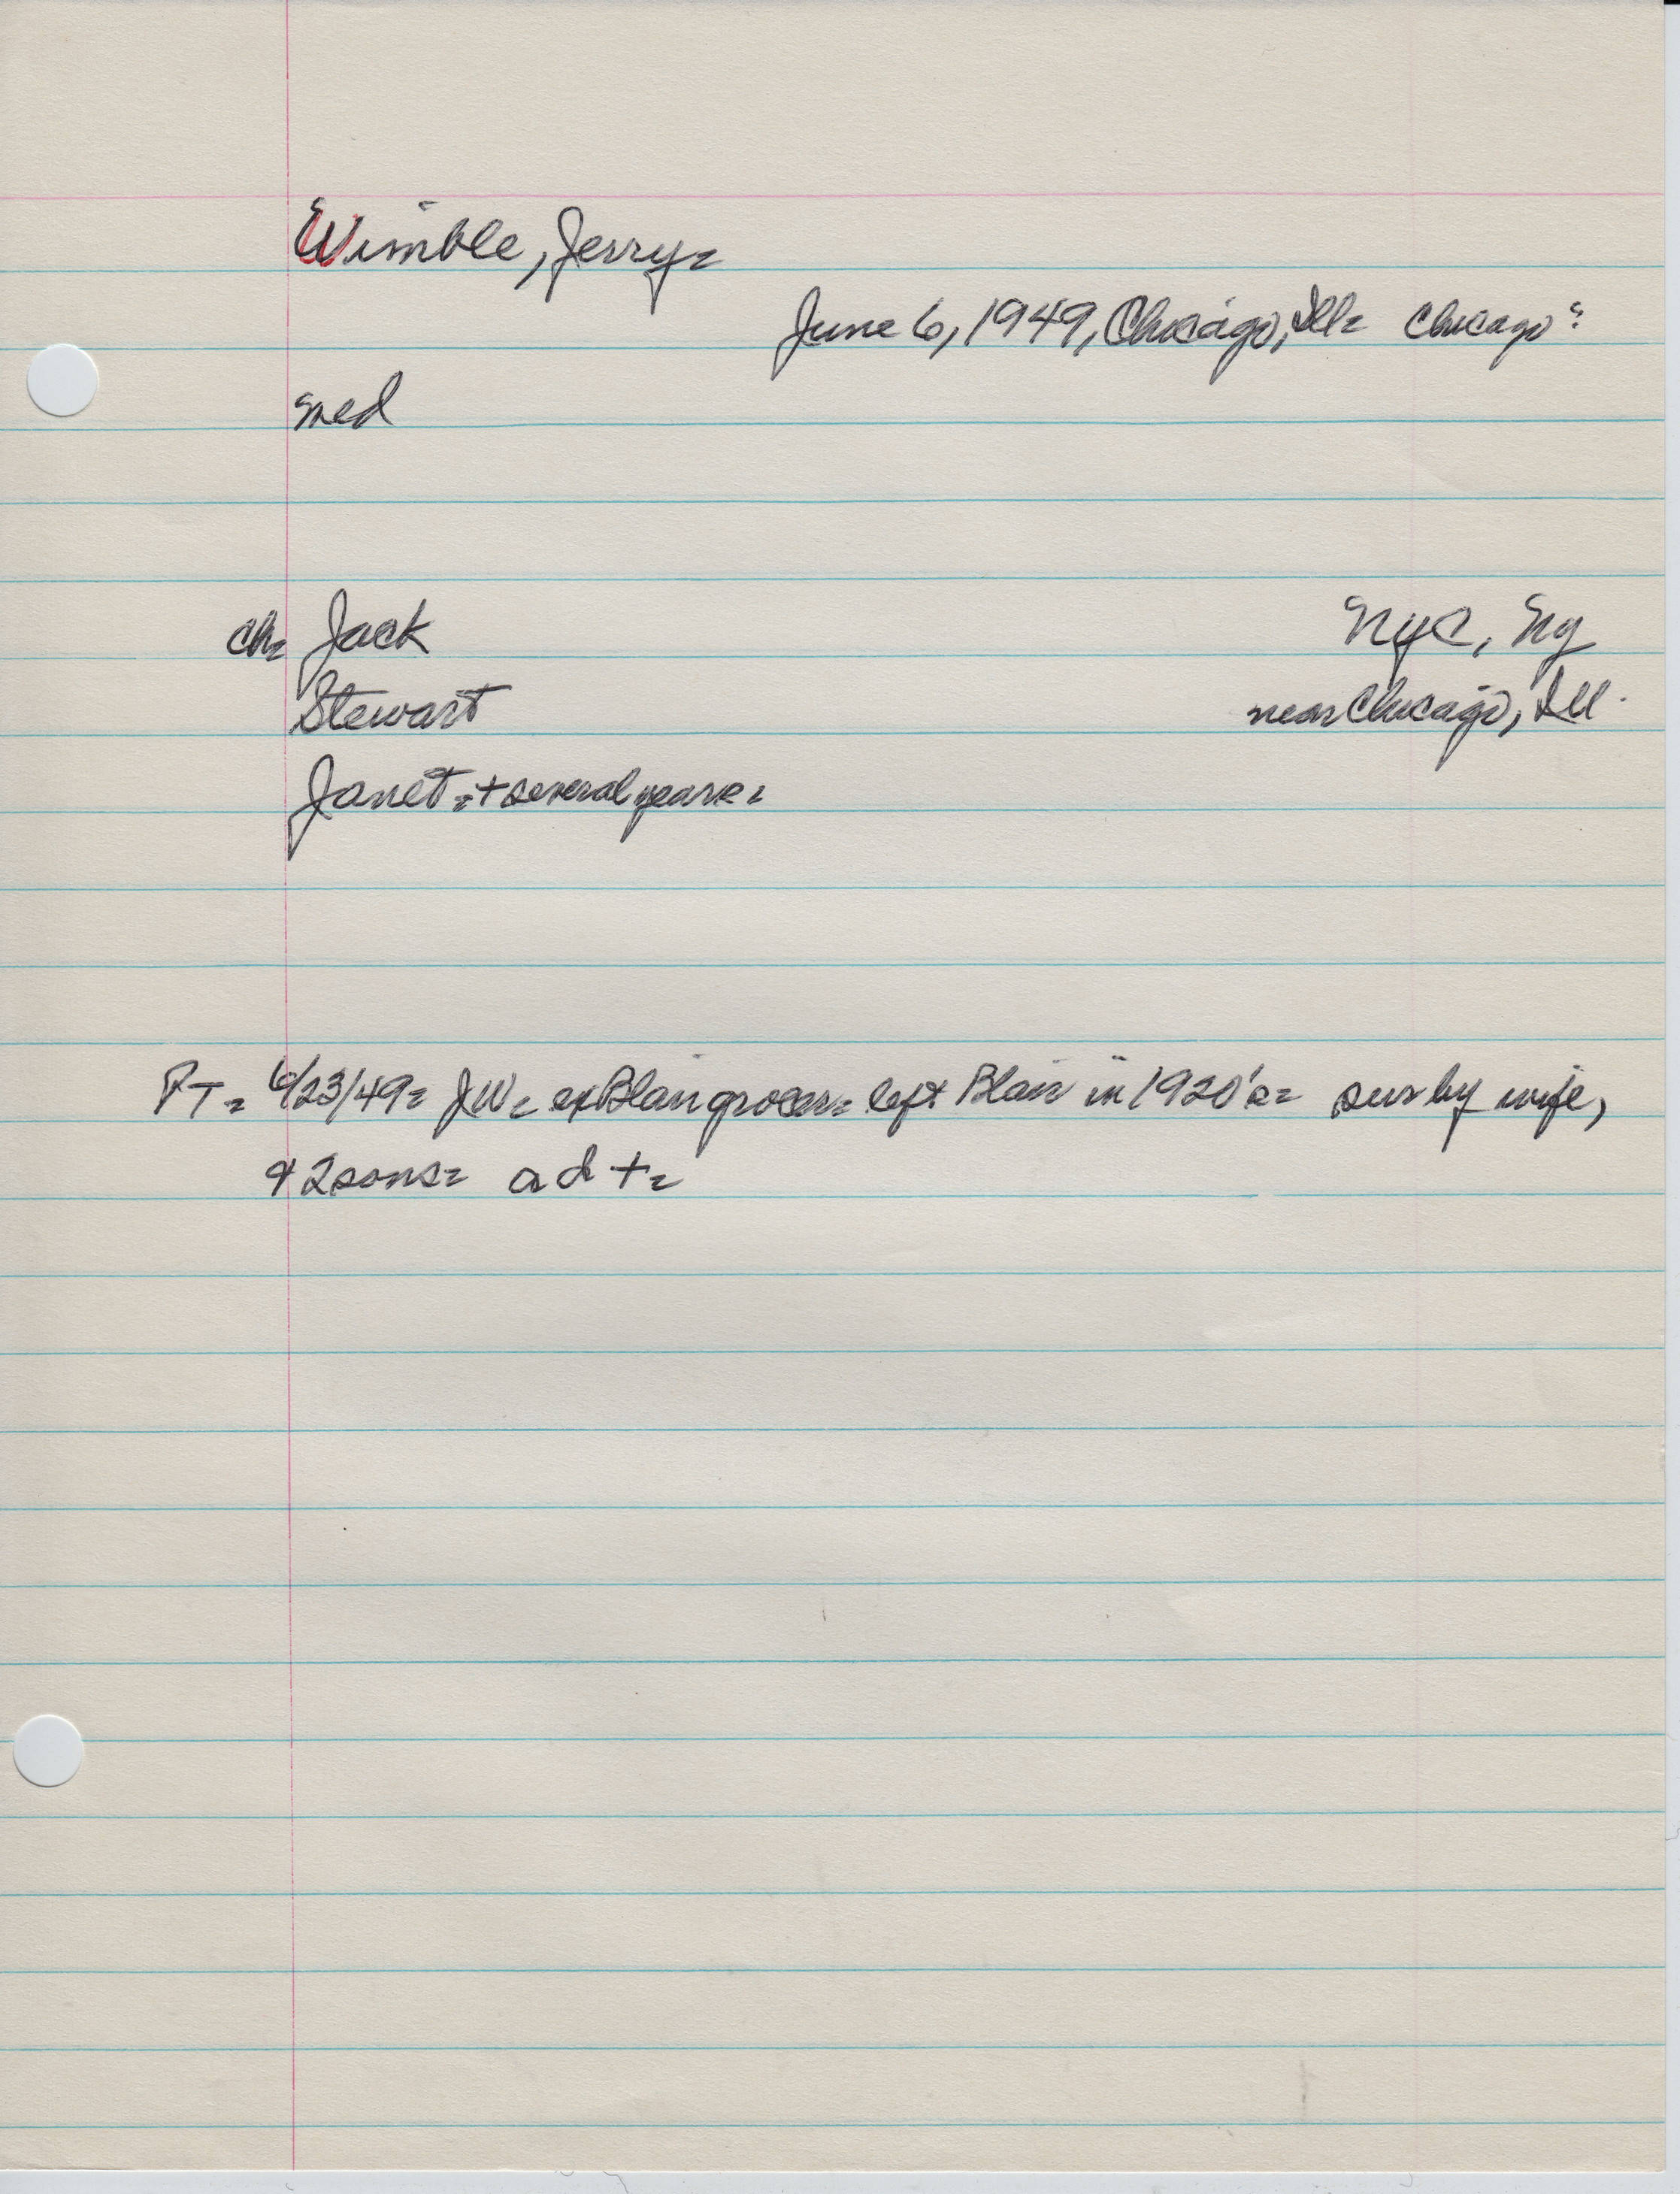 Wimble, Jerry=
June 6, 1949, Chicago, Ill= Chicago?
med
ch= Jack NYC, Ny
Stewart near Chicago, Ill.
Janet=+ several years=
PT= 6/23/49= JW= ex Blair grocer= left Blair in 1920's= sur by wife,
& 2 sons= a d +=